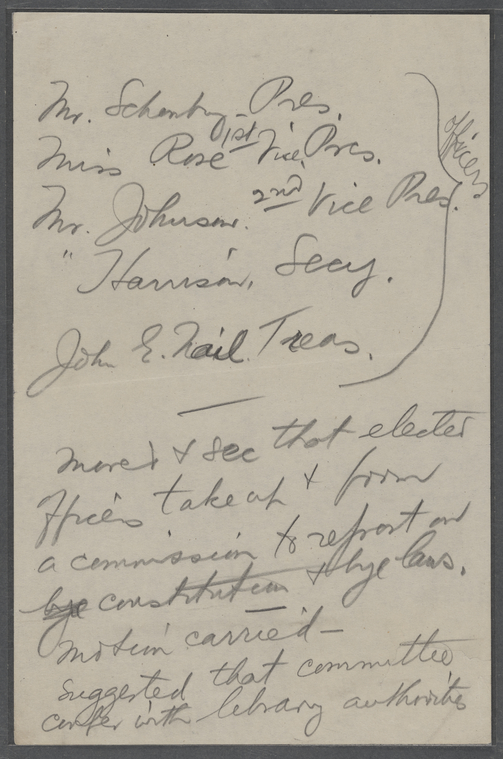 Mr. Schomburg - Pres.
Miss Rose 1st Vice Pres.
Mr. Johnson. 2nd Vice Pres.
" Harrison, Secy.
John E. Nail. Treas.
Officers
Moved & sec that elected
officers take up & form
a commission to report on
bye constitution & bye laws.
Motion carried -
Suggested that committee
confer with library authorities